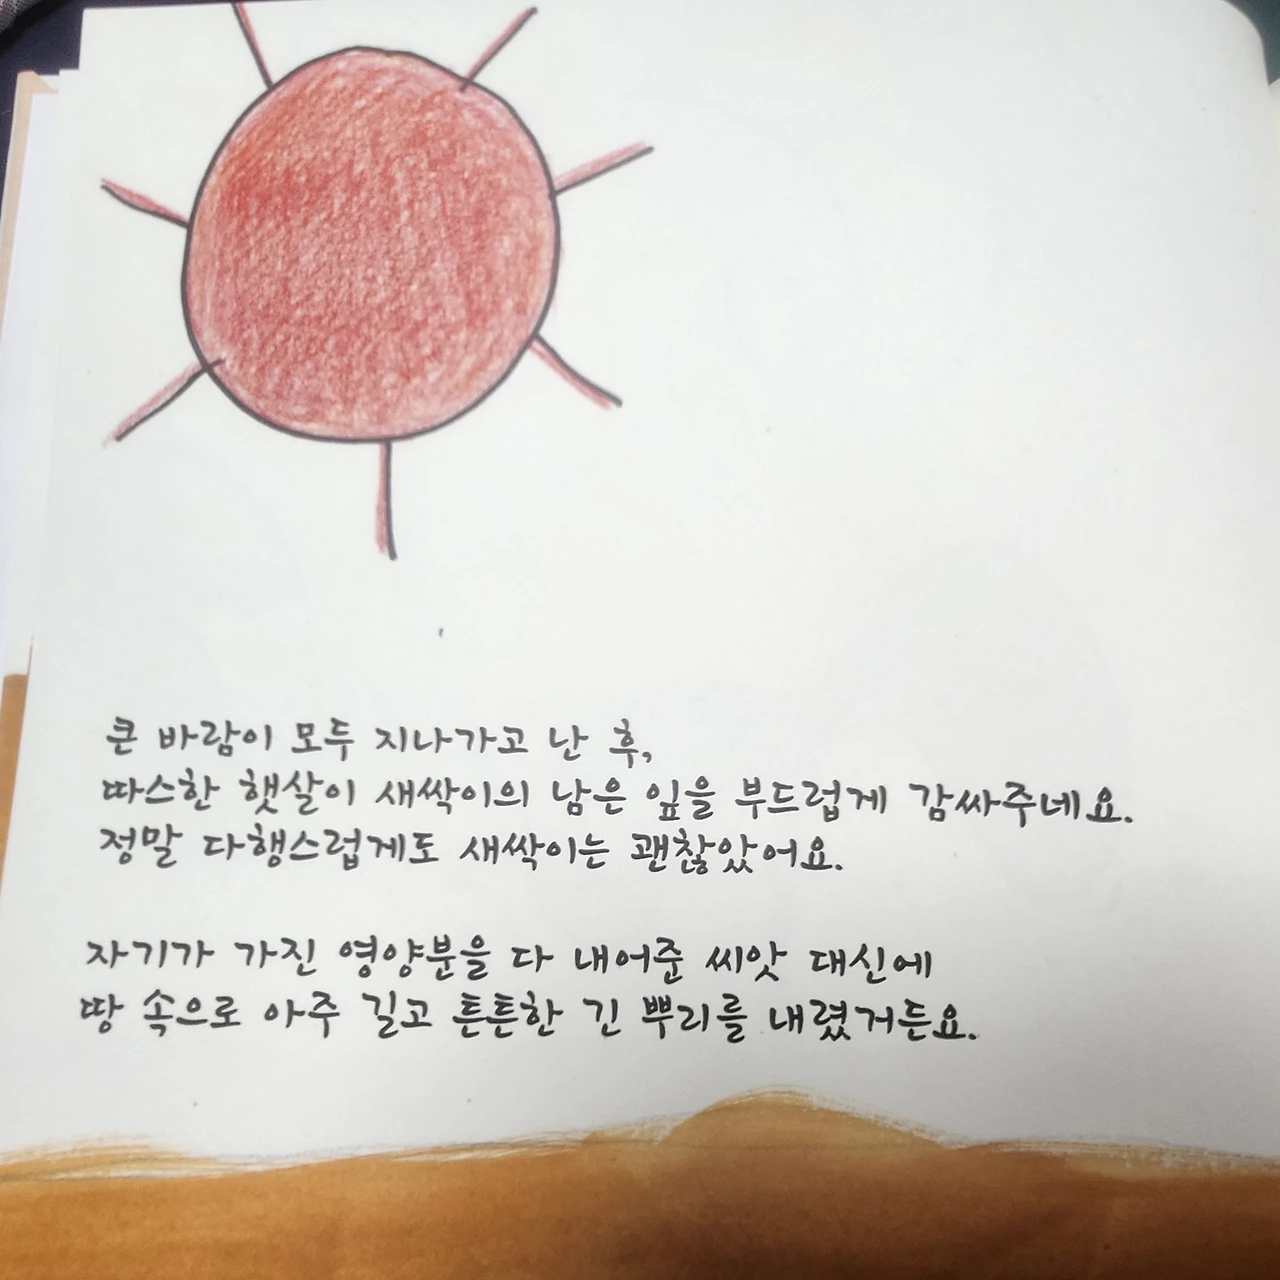 큰 바람이 모두 지나가고 난 후,
따스한 햇살이 새싹이의 남은 잎을 부드럽게 감싸주네요.
정말 다행스럽게도 새싹이는 괜찮았어요.
자기가 가진 영양분을 다 내어준 씨앗 대신에
땅 속으로 아주 길고 튼튼한 긴 뿌리를 내렸거든요.